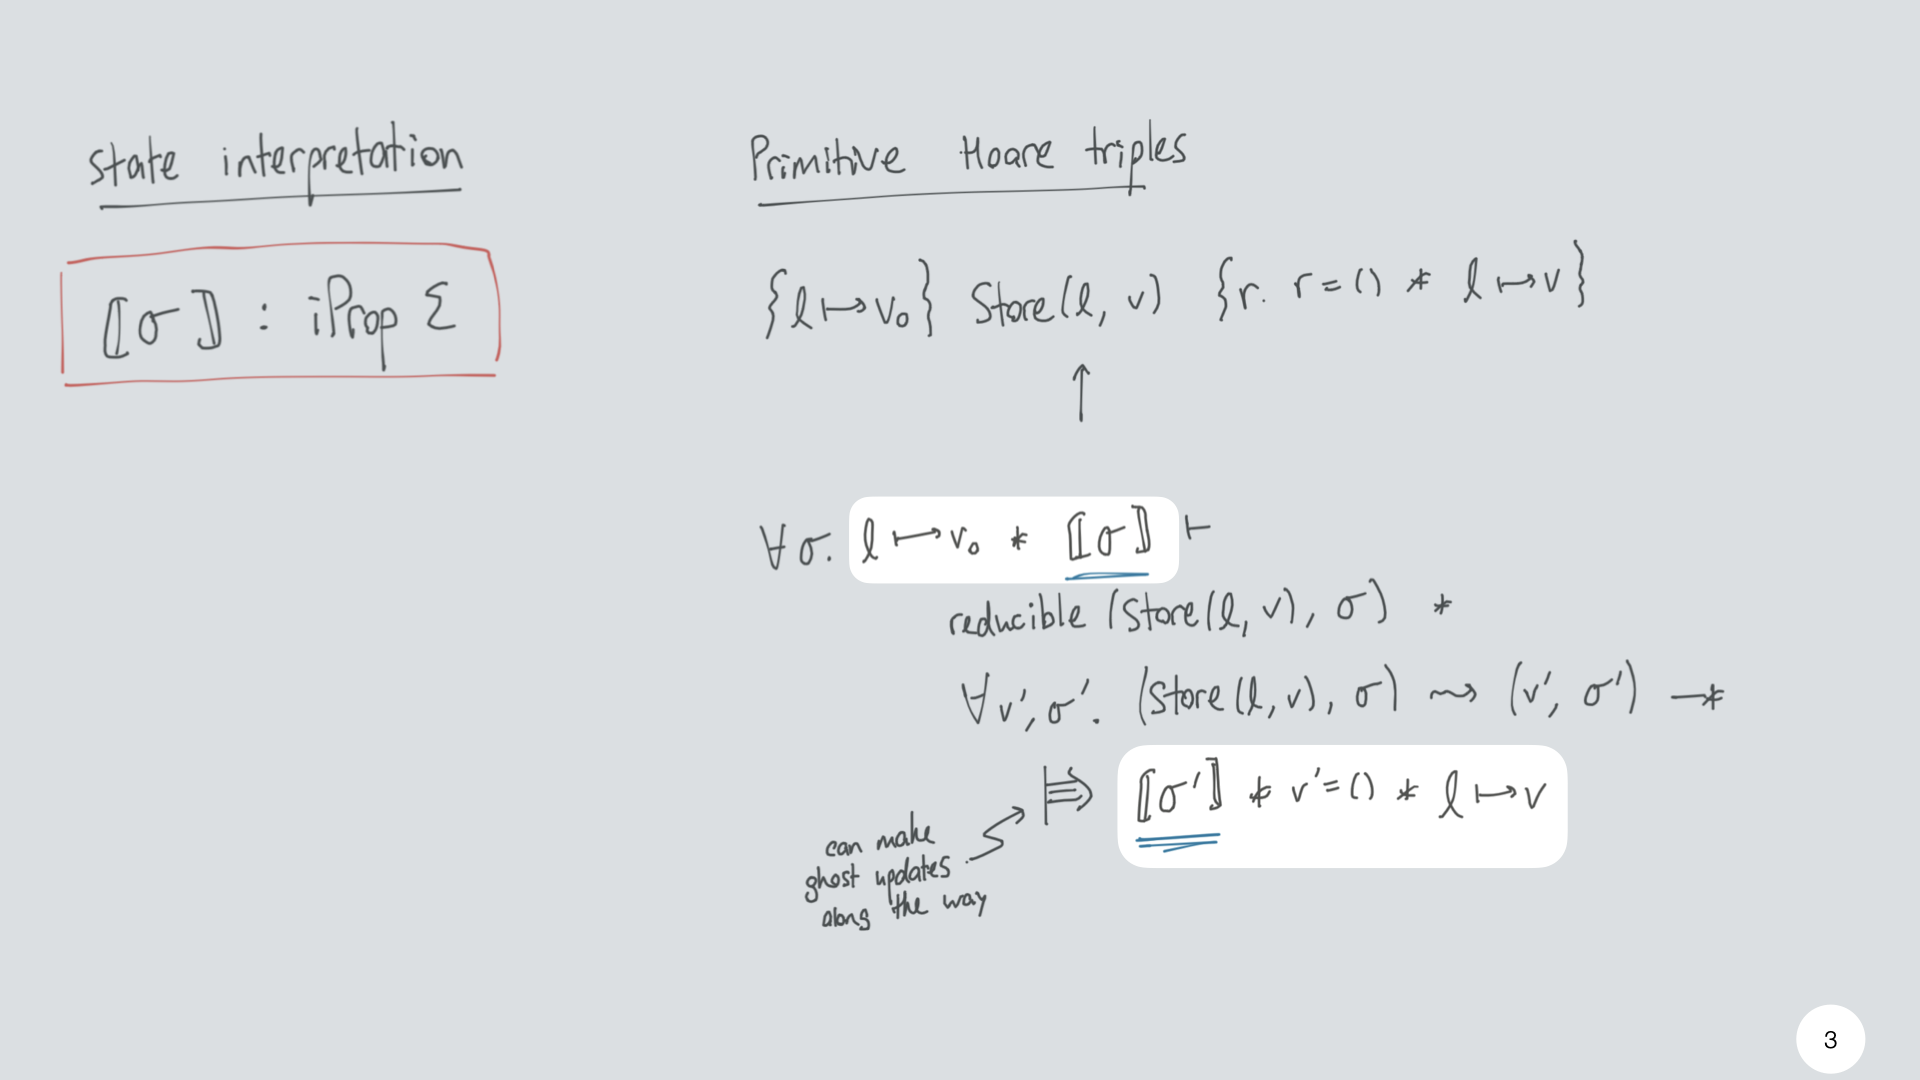 state interpretation
⟦σ⟧ : iProp Σ
Primitive Hoare triples
{l ↦ v₀} Store(l, v) {r. r = () * l ↦ v}
↑
∀σ. l ↦ v₀ * ⟦σ⟧ ⊢
reducible (Store(l, v), σ) *
∀v′, σ′. (Store(l, v), σ) ⇝ (v′, σ′) —*
|⇛ ⟦σ′⟧ * v′ = () * l ↦ v
can make
ghost updates
along the way
3